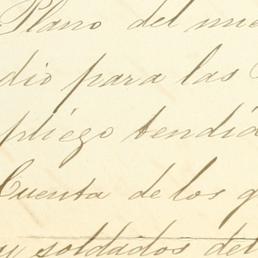 Plano del
dio para las
pliego tendid
Cuenta de los g
y soldados del